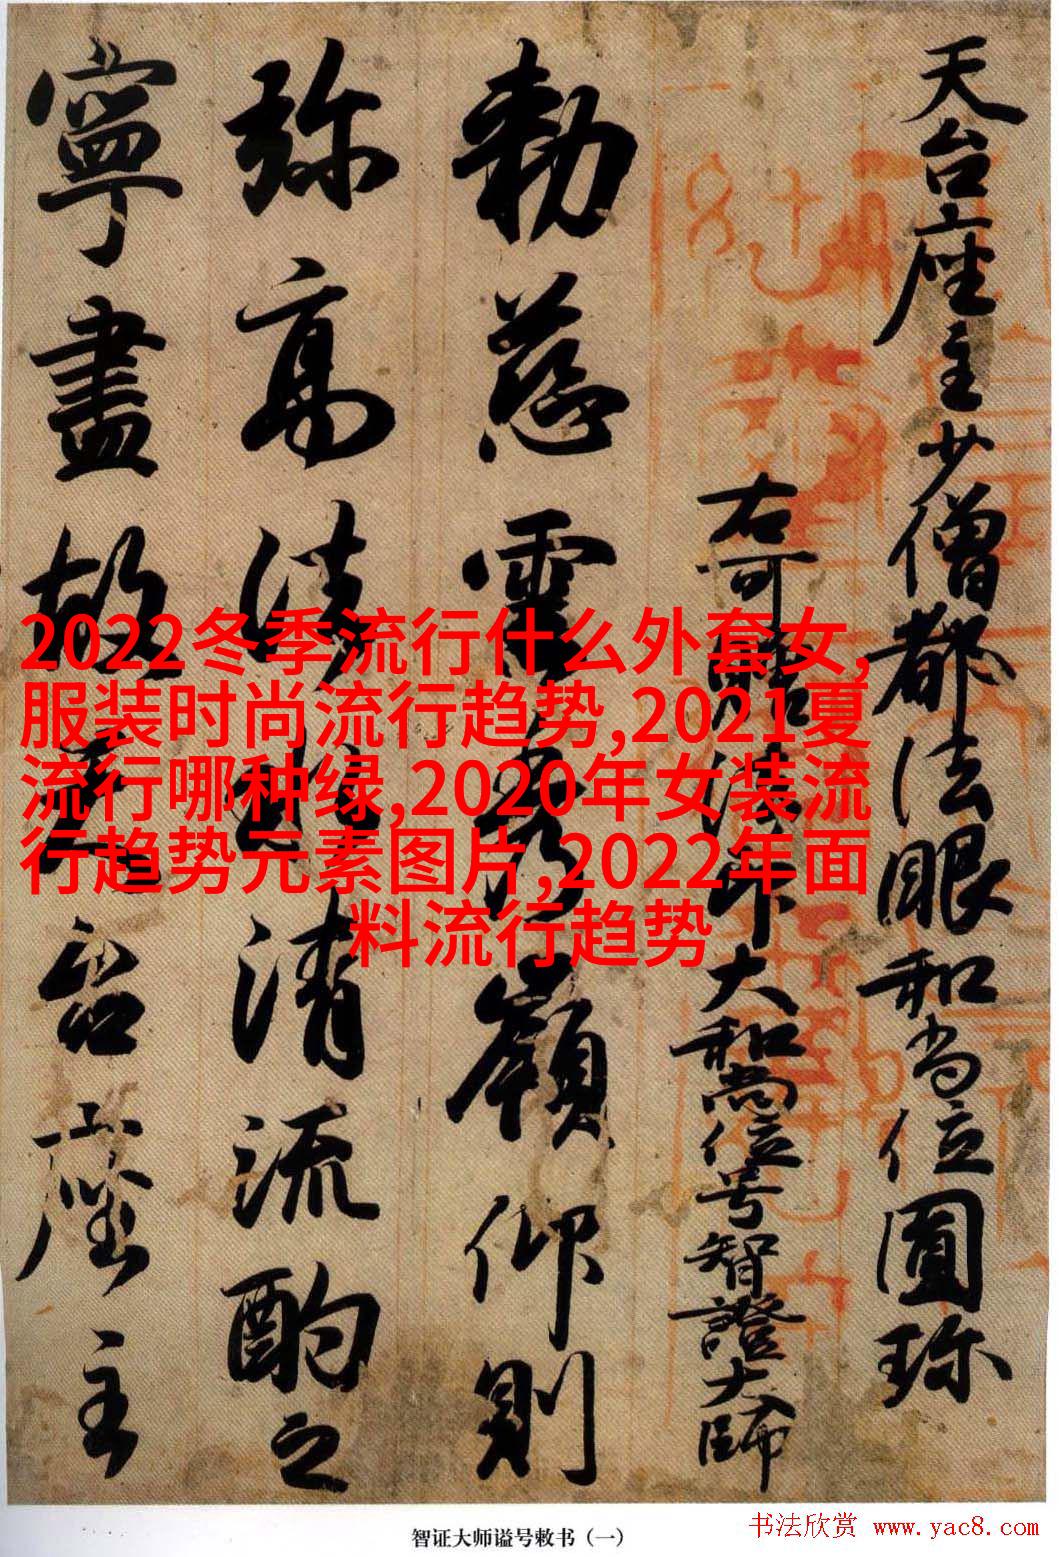 天台座主少僧都法眼和尚位圓珎
右可贈法印大和尚位号智證大師
勅慈雲秀嶺仰則
弥高清流酌之
寧盡故台座主
2022冬季流行什么外套女,
服装时尚流行趋势,2021夏
流行哪种绿,2020年女装流
行趋势元素图片,2022年面
料流行趋势
智证大师谥号敕书（一）
书法欣赏 www.yac8.com